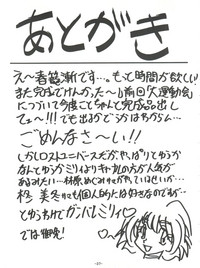 あとがき
え〜春篭漸です…。もっと時間が欲しい
また完成してげんかった〜〜。前回「大運動会」
について今度こそちゃんと完成品出し
てぇ〜!!!でも出るかどうかはわからん…
ごめんなさ〜い!!
しかしロストユニバースだが、やっぱりとゆうか
なんとゆうかミリィよりキャナルの方が人気が
あるみたい…林原めぐみがやってないせいか…
柊 美冬
も個人的には好きなのですが…
とゆうわけでガンバレミリィ
では御免!
-29-